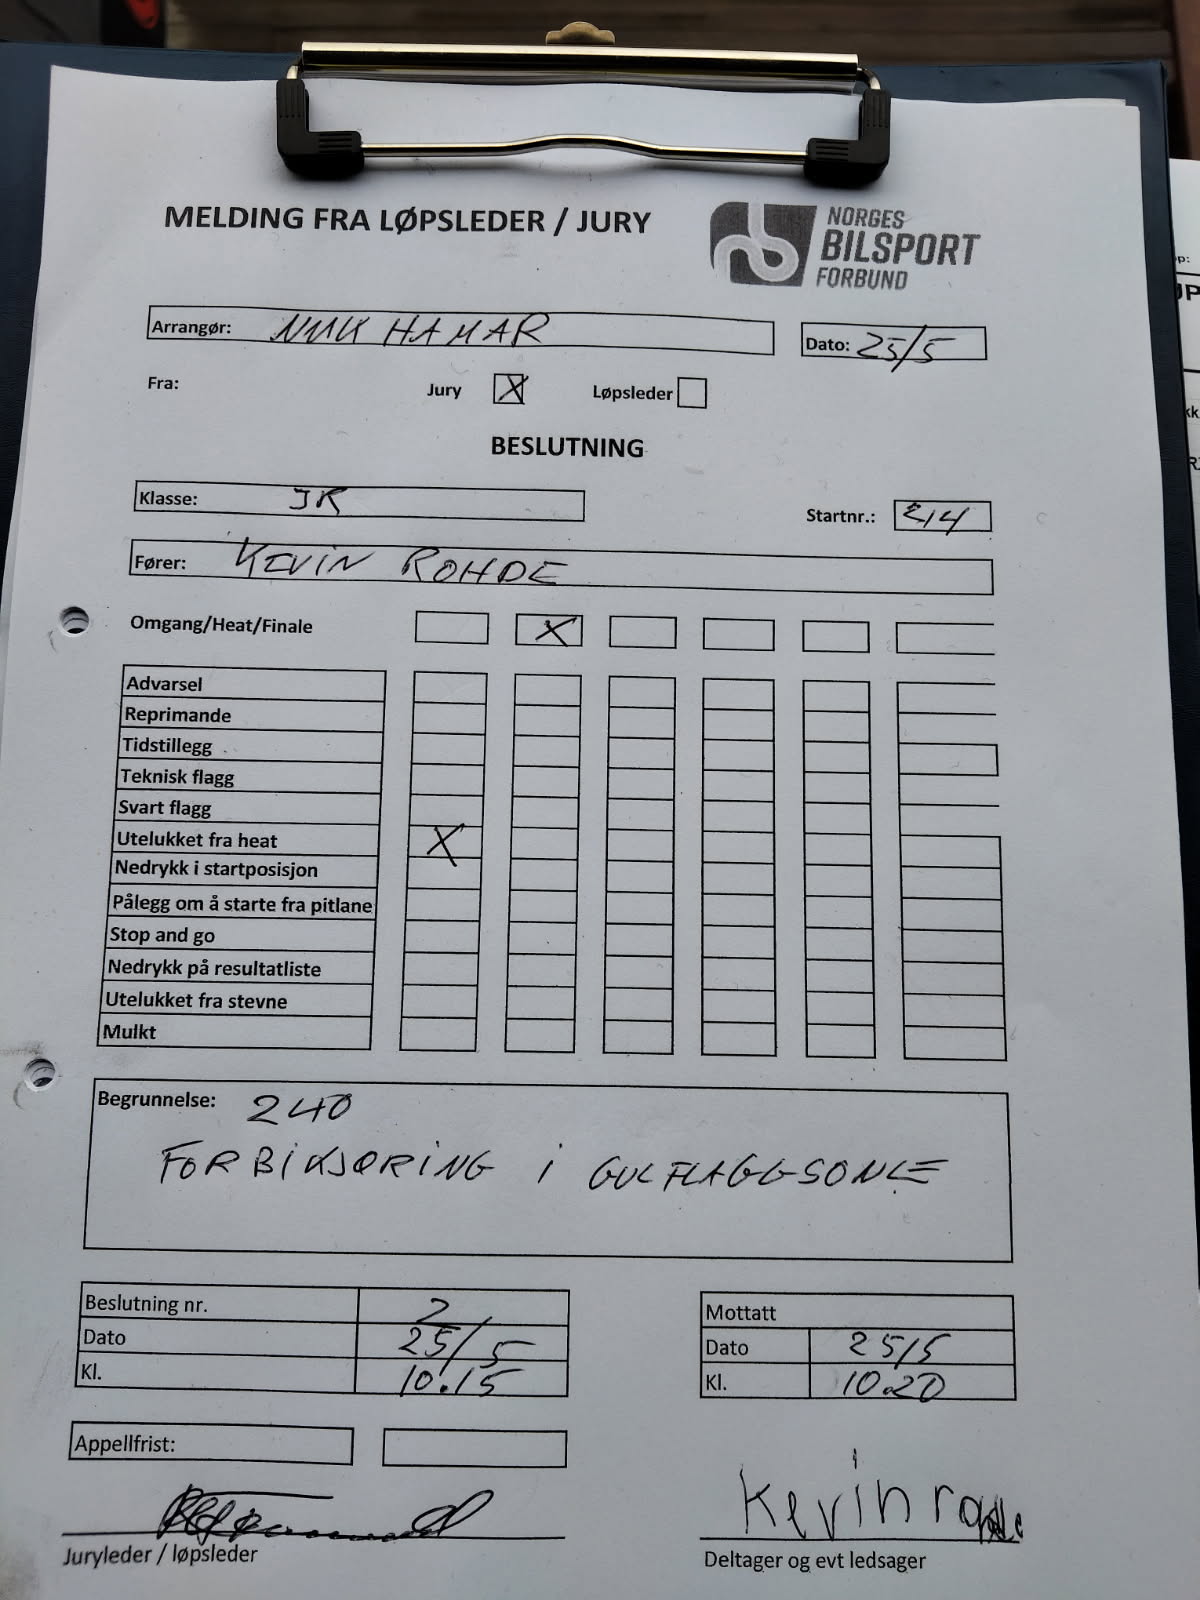 MELDING FRA LØPSLEDER / JURY
NORGES
BILSPORT
FORBUND
Arrangør: NMK HAMAR
Dato: 25/5
Fra:
Jury X
Løpsleder
BESLUTNING
Klasse: JR
Startnr.: 214
Fører: KEVIN ROHDE
Omgang/Heat/Finale X
Advarsel
Reprimande
Tidstillegg
Teknisk flagg
Svart flagg
Utelukket fra heat X
Nedrykk i startposisjon
Pålegg om å starte fra pitlane
Stop and go
Nedrykk på resultatliste
Utelukket fra stevne
Mulkt
Begrunnelse: 240
FORBIKJØRING I GULFLAGGSONE
Beslutning nr. 2
Dato 25/5
Kl. 10.15
Mottatt
Dato 25/5
Kl. 10.20
Appellfrist:
Kevin
Juryleder / løpsleder
Deltager og evt ledsager